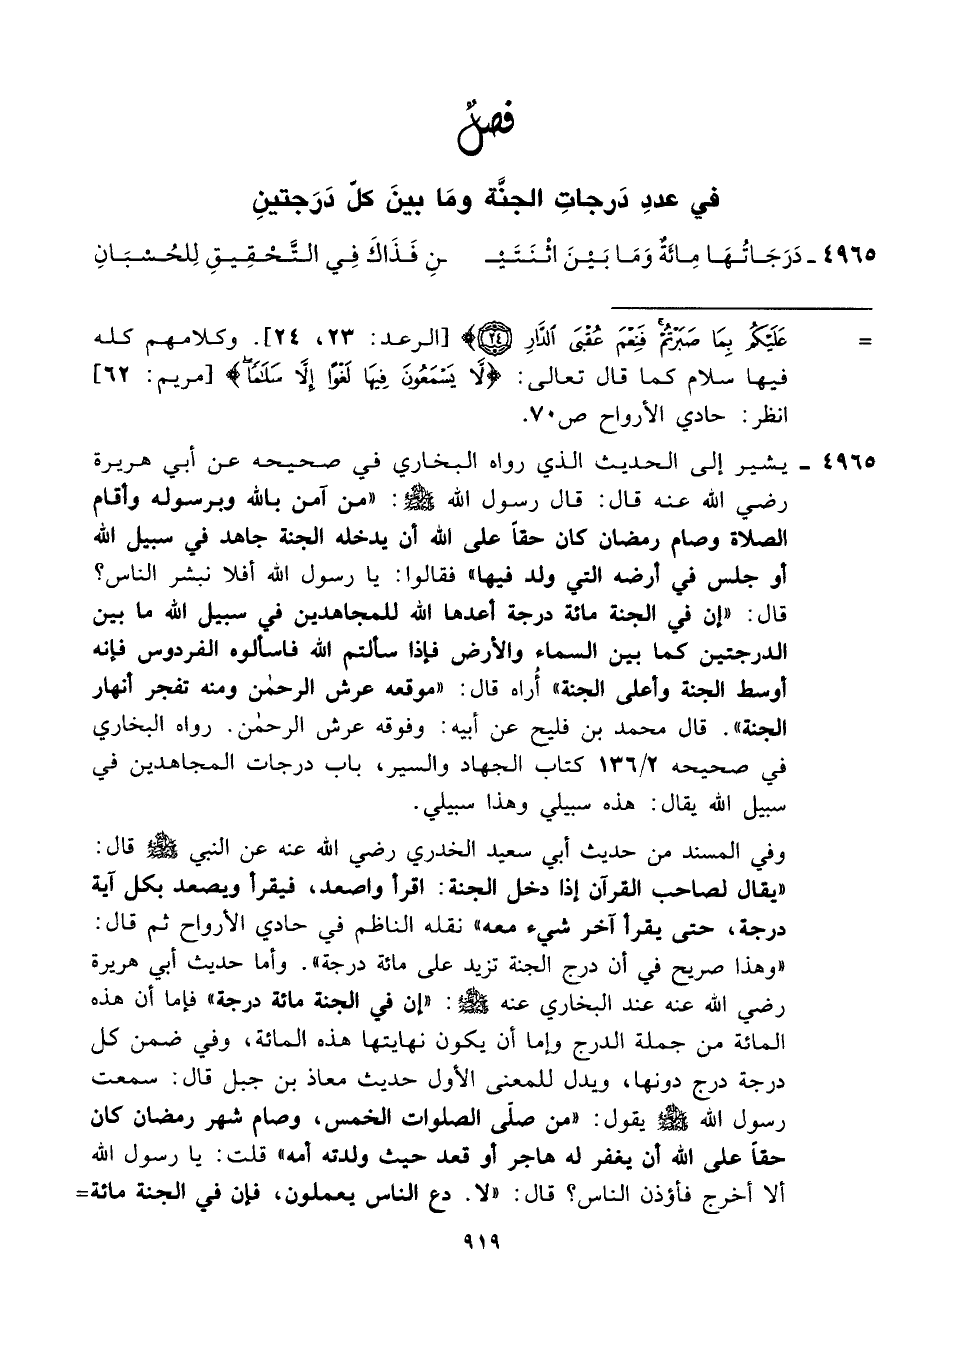 فصلٌ
في عددِ دَرجاتِ الجنَّة ومَا بينَ كلّ دَرَجتينِ
٤٩٦٥ ـ دَرَجَاتُهَا مِائَةٌ وَمَا بَيْنَ اثْنَتَيْـ ـنِ فَذَاكَ فِي التَّحْقِيقِ لِلحُسْبَانِ
= عَلَيْكُم بِمَا صَبَرْتُمْ فَنِعْمَ عُقْبَى ٱلدَّارِ ۝٢٤﴾ [الرعد: ٢٣، ٢٤]. وكلامهم كله
فيها سلام كما قال تعالى: ﴿لَّا يَسْمَعُونَ فِيهَا لَغْوًا إِلَّا سَلَٰمًا﴾ [مريم: ٦٢]
انظر: حادي الأرواح ص٧٠.
٤٩٦٥ ـ يشير إلى الحديث الذي رواه البخاري في صحيحه عن أبي هريرة
رضي الله عنه قال: قال رسول الله ﷺ: «من آمن بالله وبرسوله وأقام
الصلاة وصام رمضان كان حقاً على الله أن يدخله الجنة جاهد في سبيل الله
أو جلس في أرضه التي ولد فيها» فقالوا: يا رسول الله أفلا نبشر الناس؟
قال: «إن في الجنة مائة درجة أعدها الله للمجاهدين في سبيل الله ما بين
الدرجتين كما بين السماء والأرض فإذا سألتم الله فاسألوه الفردوس فإنه
أوسط الجنة وأعلى الجنة» أُراه قال: «موقعه عرش الرحمٰن ومنه تفجر أنهار
الجنة». قال محمد بن فليح عن أبيه: وفوقه عرش الرحمٰن. رواه البخاري
في صحيحه ١٣٦/٢ كتاب الجهاد والسير، باب درجات المجاهدين في
سبيل الله يقال: هذه سبيلي وهذا سبيلي.
وفي المسند من حديث أبي سعيد الخدري رضي الله عنه عن النبي ﷺ قال:
«يقال لصاحب القرآن إذا دخل الجنة: اقرأ واصعد، فيقرأ ويصعد بكل آية
درجة، حتى يقرأ آخر شيء معه» نقله الناظم في حادي الأرواح ثم قال:
«وهذا صريح في أن درج الجنة تزيد على مائة درجة». وأما حديث أبي هريرة
رضي الله عنه عند البخاري عنه ﷺ: «إن في الجنة مائة درجة» فإما أن هذه
المائة من جملة الدرج وإما أن يكون نهايتها هذه المائة، وفي ضمن كل
درجة درج دونها، ويدل للمعنى الأول حديث معاذ بن جبل قال: سمعت
رسول الله ﷺ يقول: «من صلّى الصلوات الخمس، وصام شهر رمضان كان
حقاً على الله أن يغفر له هاجر أو قعد حيث ولدته أمه» قلت: يا رسول الله
ألا أخرج فأؤذن الناس؟ قال: «لا. دع الناس يعملون، فإن في الجنة مائة=
٩١٩